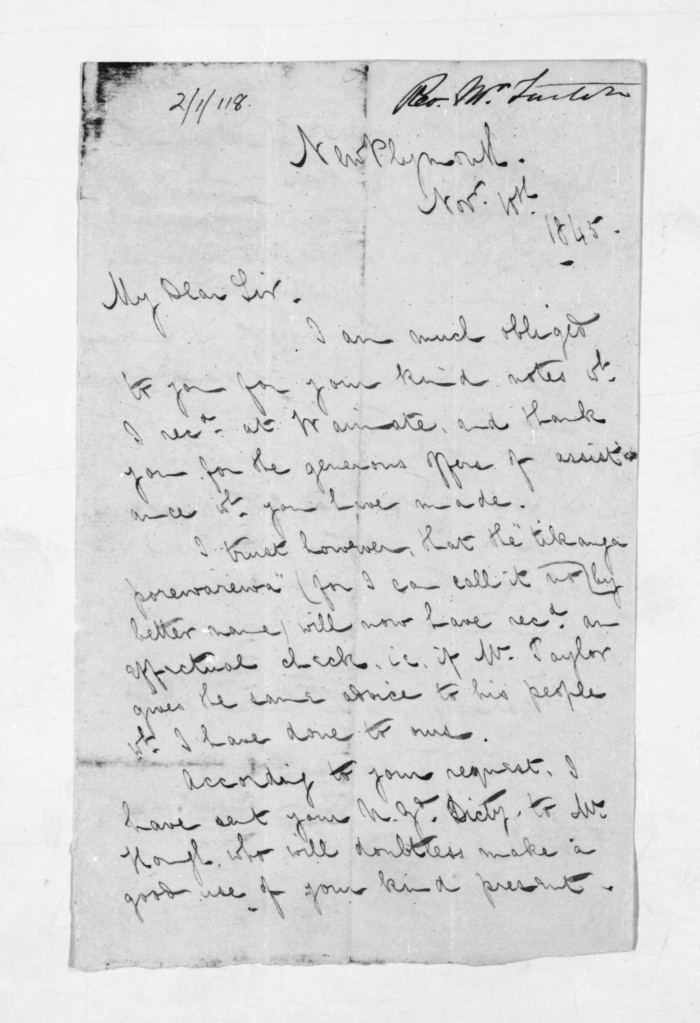 2/1/118.
Rev Mr Turton
New Plymouth.
Novr. 10th.
1845.
My Dear Sir.
I am much obliged
to you for your kind notes wh.
I recd. at Waimate, and thank
you for the generous offers of assist
ance wh. you have made.
I trust however, that the "tikanga
porewarewa" (for I can call it no by
better name) will now have recd. an
effectual check, i.e. if Mr. Taylor
gives the same advice to his people
wh. I have done to ours.
According to your request, I
have sent your N.Zd. Dicty. to Mr
Hough, who will doubtless make a
good use of your kind present.